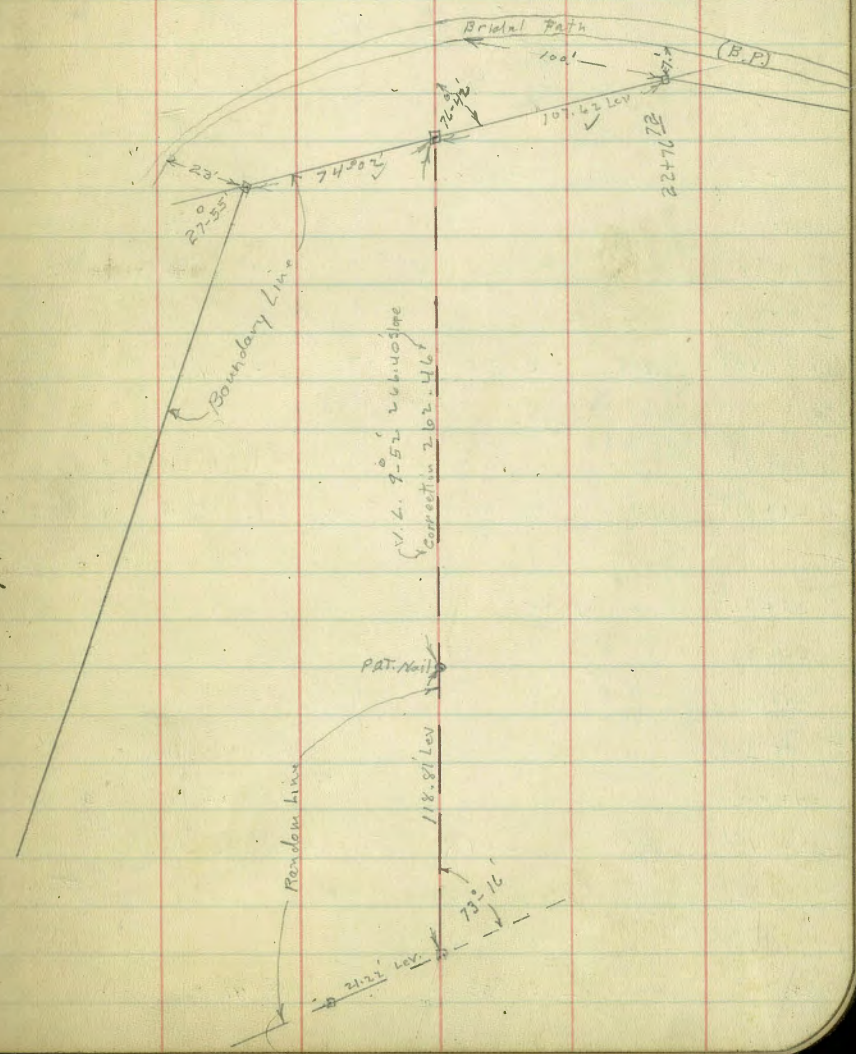 Bridal Path
(B.P.)
100'
7.'
76°-42'
107.62 Lev
22+76 72
23'
74.02'
27°-55'
Boundary Line
V.L. 9°-52' 266.40 slope
Correction 262.46'
Pat. Nail
118.81' Lev
Random Line
73°-16'
21.22' Lev.